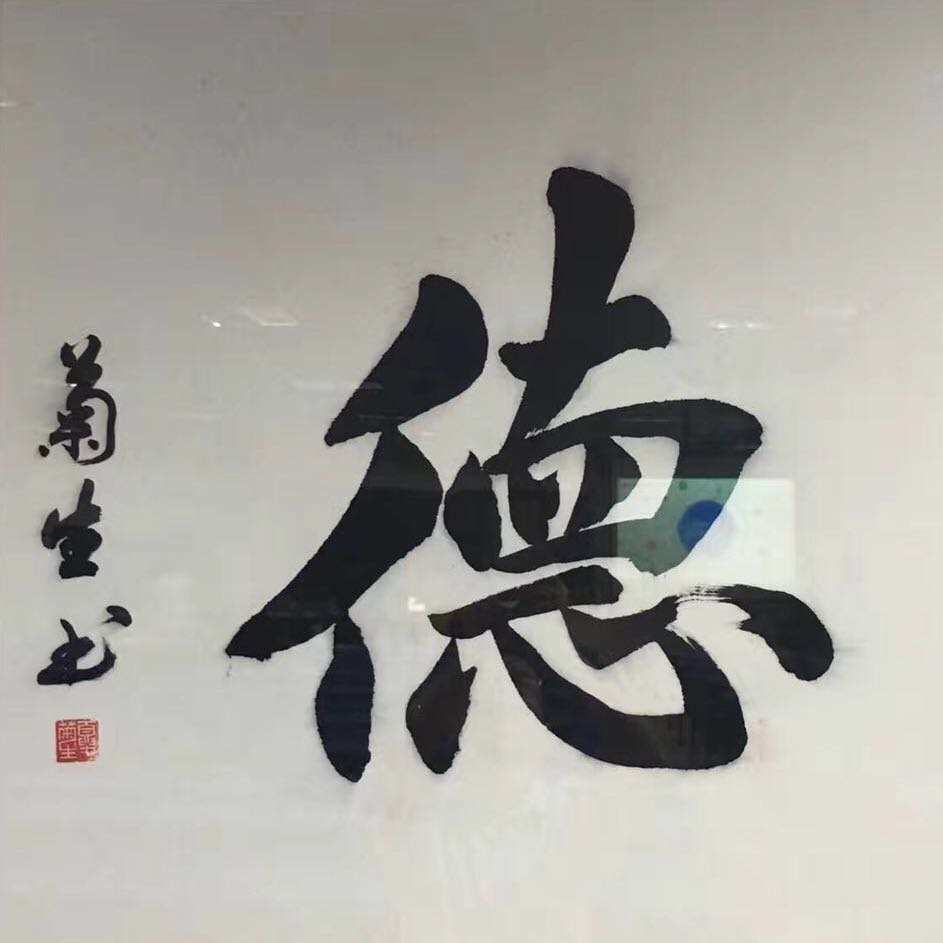 德
菊生书